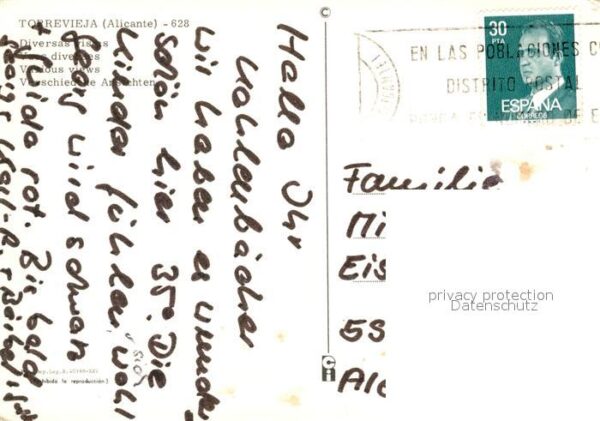 TORREVIEJA (Alicante) - 628
Diversas vistas
Vues diverses
Various views
Verschiedene Ansichten
Hallo Ihr
Kohlenbächer
wir haben es wunder
schön hier 35° Die
Kinder fühlen wohl
sich
Georg wird schwarz
Heide rot. Bis bald
(Prohibida la reproducción)
30
PTA
ESPAÑA
CORREOS
EN LAS POBLACIONES C
DISTRITO POSTAL
DE E
Familie
Mi
Eis
55
Ale
privacy protection
Datenschutz
ci